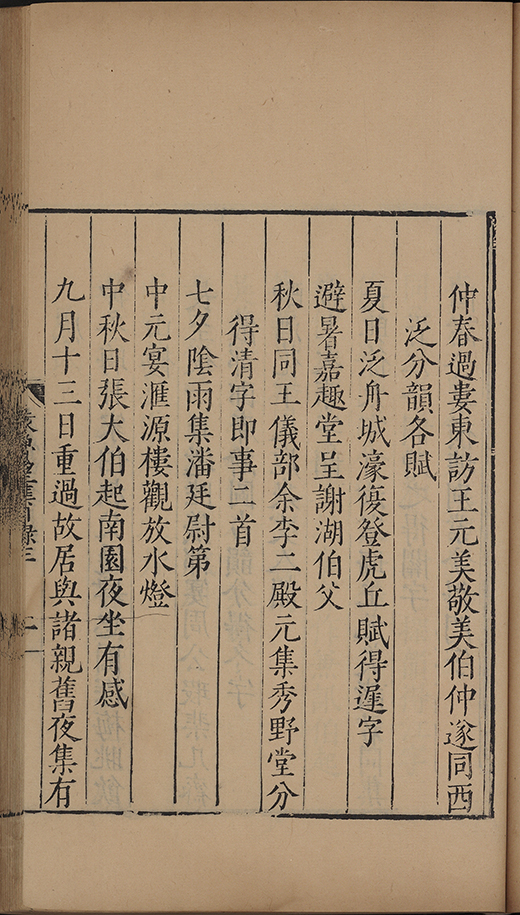 仲春過婁東訪王元美敬美伯仲遂同西
泛分韻各賦
夏日泛舟城濠復登虎丘賦得遲字
避暑嘉趣堂呈謝湖伯父
秋日同王儀部余李二殿元集秀野堂分
得清字即事二首
七夕陰雨集潘廷尉第
中元宴滙源樓觀放水燈
中秋日張大伯起南園夜坐有感
九月十三日重過故居與諸親舊夜集有